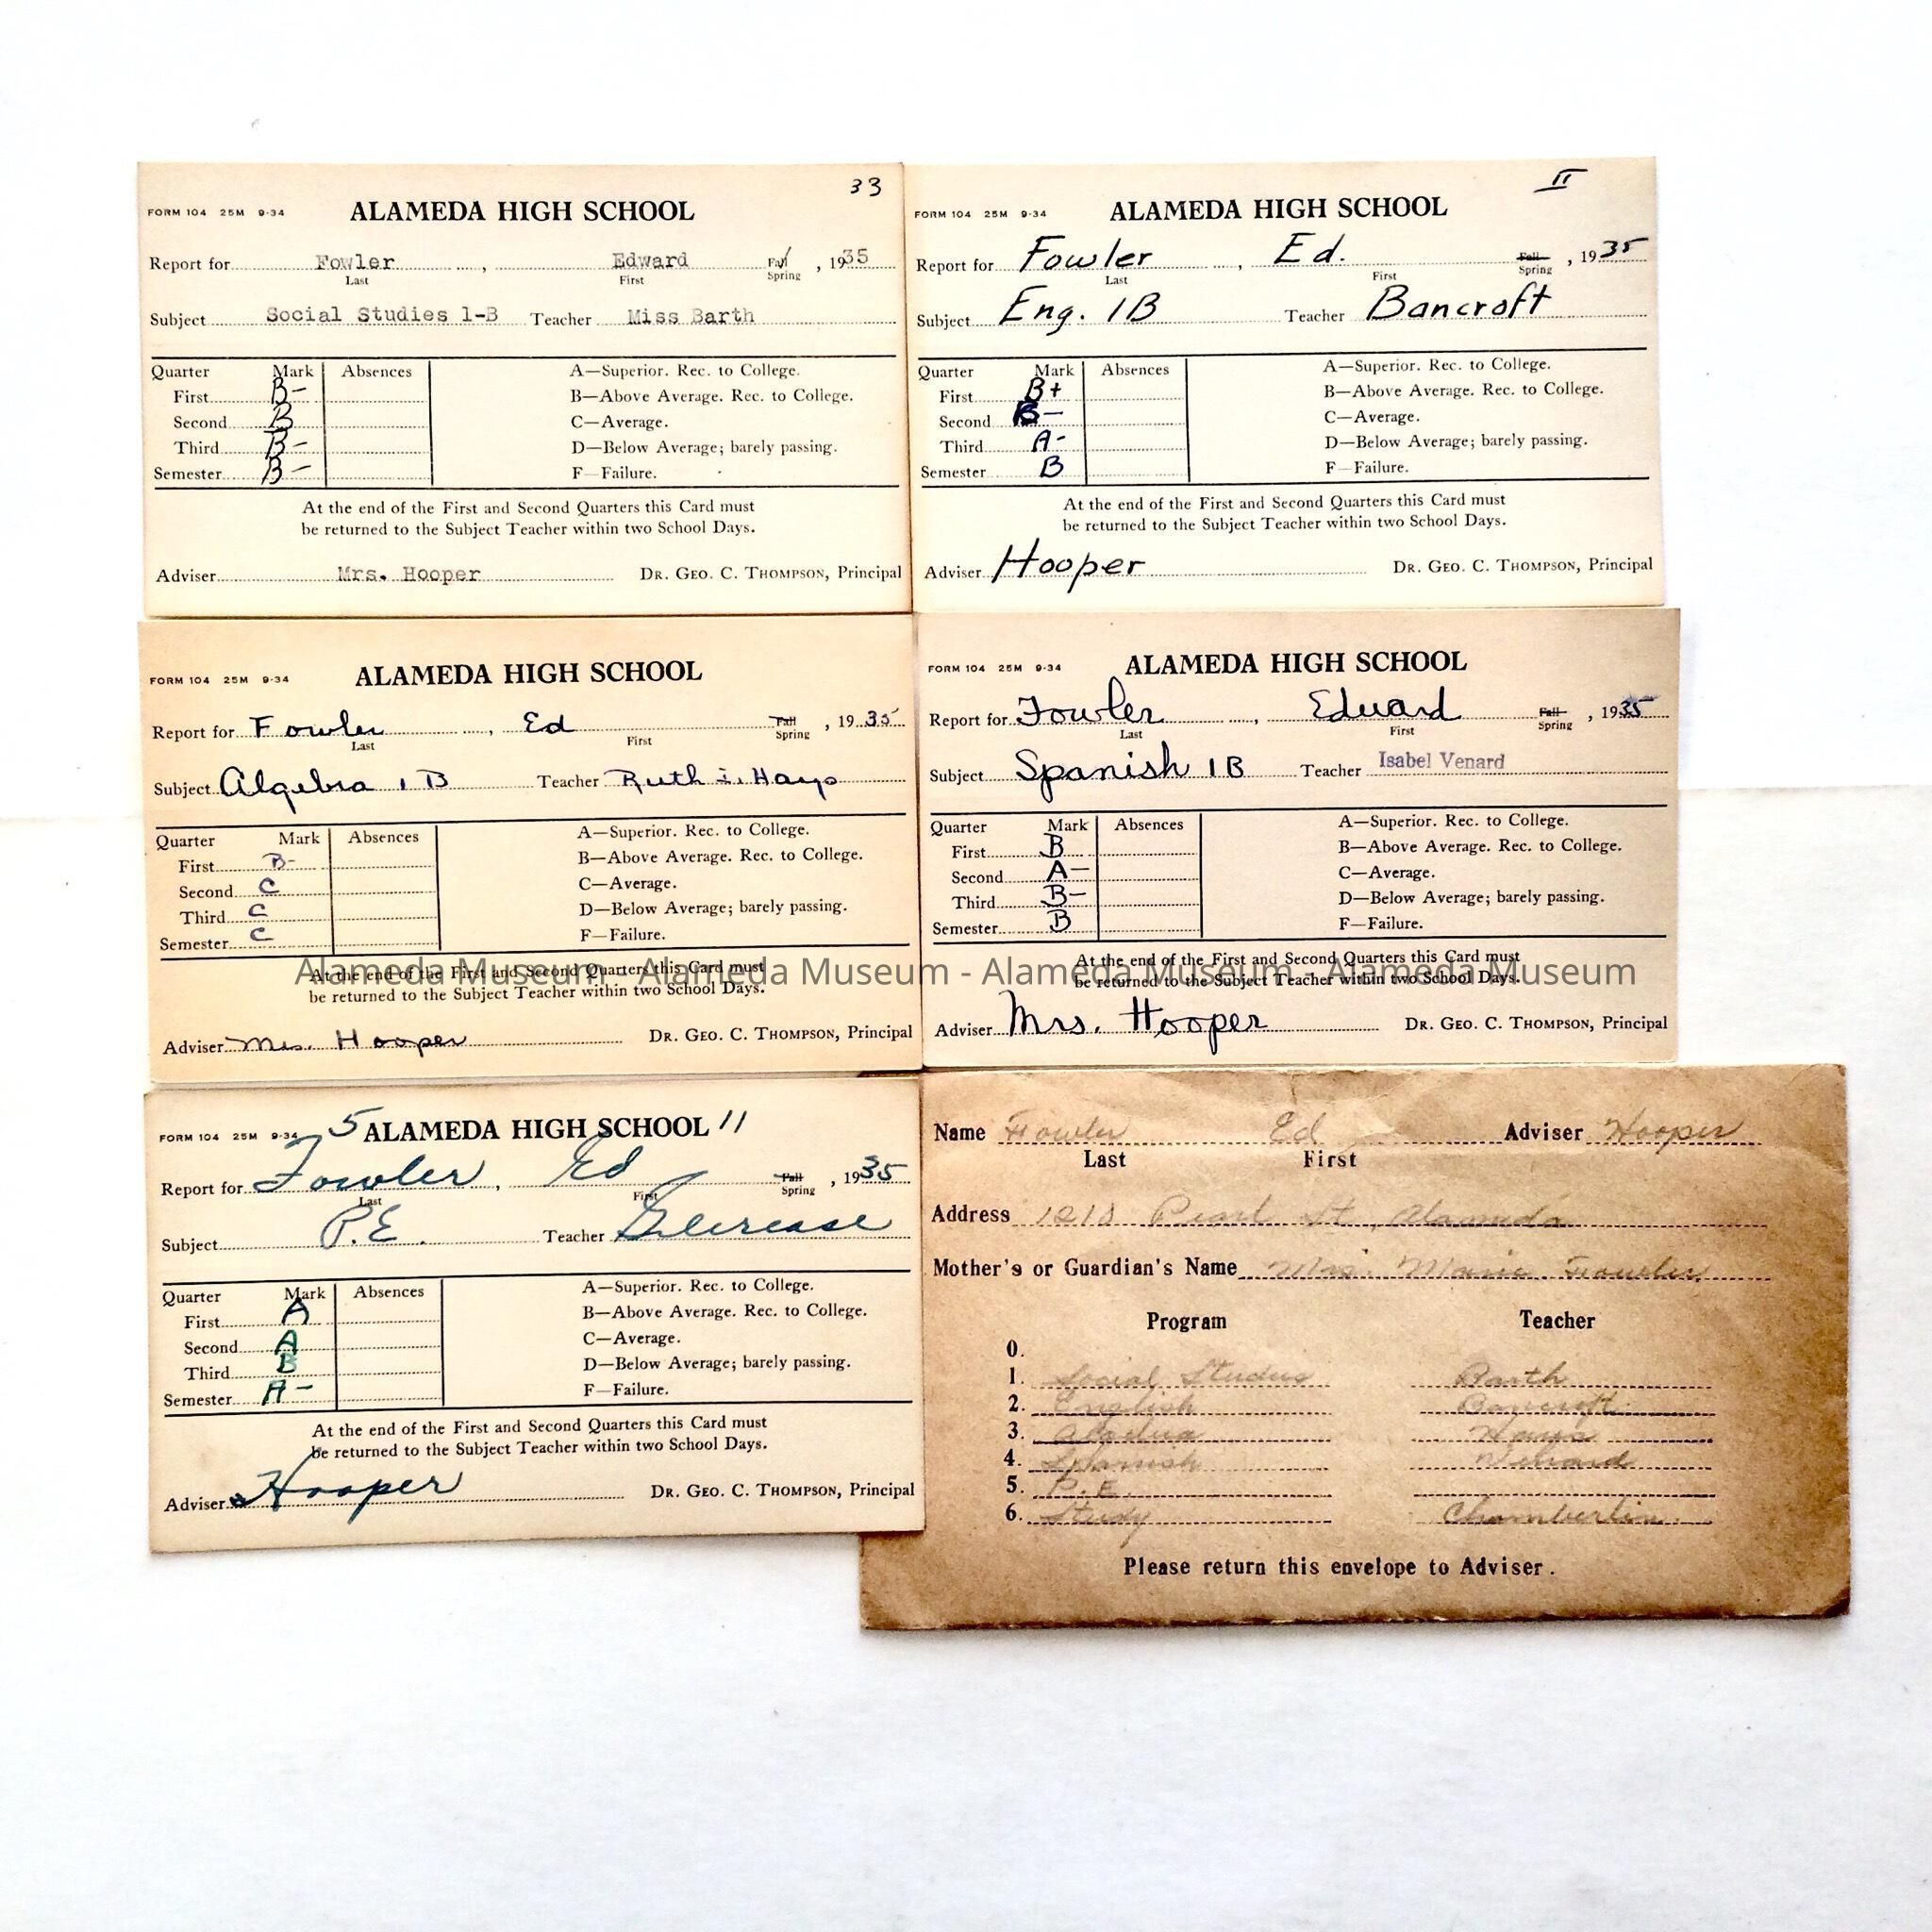 33
FORM 104 25M 9-34 ALAMEDA HIGH SCHOOL
Report for Fowler, Edward Fall Spring, 1935
Last First
Subject Social Studies 1-B Teacher Miss Barth
Quarter Mark Absences A—Superior. Rec. to College.
First B- B—Above Average. Rec. to College.
Second B C—Average.
Third B- D—Below Average; barely passing.
Semester B- F—Failure.
At the end of the First and Second Quarters this Card must
be returned to the Subject Teacher within two School Days.
Adviser Mrs. Hooper DR. GEO. C. THOMPSON, Principal
II
FORM 104 25M 9-34 ALAMEDA HIGH SCHOOL
Report for Fowler, Ed. Fall Spring, 1935
Last First
Subject Eng. 1B Teacher Bancroft
Quarter Mark Absences A—Superior. Rec. to College.
First B+ B—Above Average. Rec. to College.
Second B- C—Average.
Third A- D—Below Average; barely passing.
Semester B F—Failure.
At the end of the First and Second Quarters this Card must
be returned to the Subject Teacher within two School Days.
Adviser Hooper DR. GEO. C. THOMPSON, Principal
FORM 104 25M 9-34 ALAMEDA HIGH SCHOOL
Report for Fowler, Ed Fall Spring, 1935
Last First
Subject Algebra 1B Teacher Ruth Hays
Quarter Mark Absences A—Superior. Rec. to College.
First B- B—Above Average. Rec. to College.
Second C C—Average.
Third C D—Below Average; barely passing.
Semester C F—Failure.
At the end of the First and Second Quarters this Card must
be returned to the Subject Teacher within two School Days.
Adviser Mrs. Hooper DR. GEO. C. THOMPSON, Principal
FORM 104 25M 9-34 ALAMEDA HIGH SCHOOL
Report for Fowler, Edward Fall Spring, 1935
Last First
Subject Spanish 1B Teacher Isabel Venard
Quarter Mark Absences A—Superior. Rec. to College.
First B B—Above Average. Rec. to College.
Second A- C—Average.
Third B- D—Below Average; barely passing.
Semester B F—Failure.
At the end of the First and Second Quarters this Card must
be returned to the Subject Teacher within two School Days.
Adviser Mrs. Hooper DR. GEO. C. THOMPSON, Principal
Alameda Museum - Alameda Museum - Alameda Museum - Alameda Museum
FORM 104 25M 9-34 5 ALAMEDA HIGH SCHOOL 11
Report for Fowler, Ed Fall Spring, 1935
Last First
Subject P.E. Teacher
Quarter Mark Absences A—Superior. Rec. to College.
First A B—Above Average. Rec. to College.
Second A C—Average.
Third B D—Below Average; barely passing.
Semester A- F—Failure.
At the end of the First and Second Quarters this Card must
be returned to the Subject Teacher within two School Days.
Adviser Hooper DR. GEO. C. THOMPSON, Principal
Name Fowler Ed Adviser Hooper
Last First
Address Pearl St., Alameda
Mother's or Guardian's Name Mrs. Marie Fowler
Program Teacher
0.
1. Social Studies Barth
2. English Bancroft
3. Algebra Hays
4. Spanish Venard
5. P.E.
6. Study Chamberlin
Please return this envelope to Adviser.